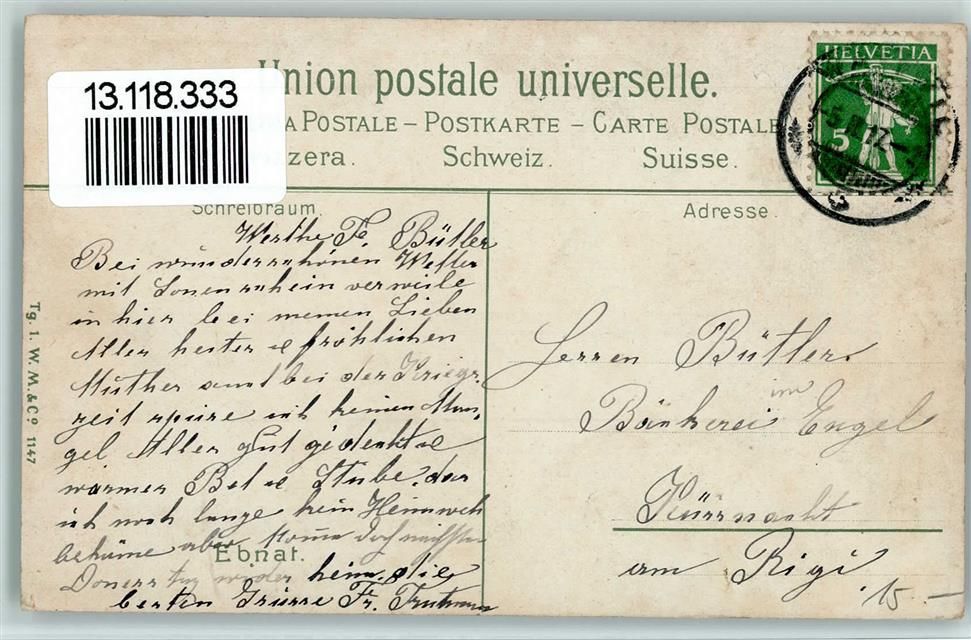 13.118.333
Union postale universelle.
A POSTALE – POSTKARTE – CARTE POSTALE
zzera. Schweiz. Suisse.
HELVETIA
5
Schreibraum.
Adresse.
Werthe Fr. Bütler
Bei wunderschönen Wetter
mit Sonenschein verweile
ich hier bei meinen Lieben
Aller bester &
Muther bei der Kriegs-
zeit spüre ich keinen Man-
gel Aller gut
warmes Bet & Stube. das
ich noch lange kein Heimweh
bekäme aber komm doch nächsten
Donerstag wieder heim. die
besten Grüsse Fr.
Ebnat.
Herren Bütler
Bäckerei im Engel
Küssnacht
am Rigi
15 –
Tg. 1. W. M. & Co. 1147